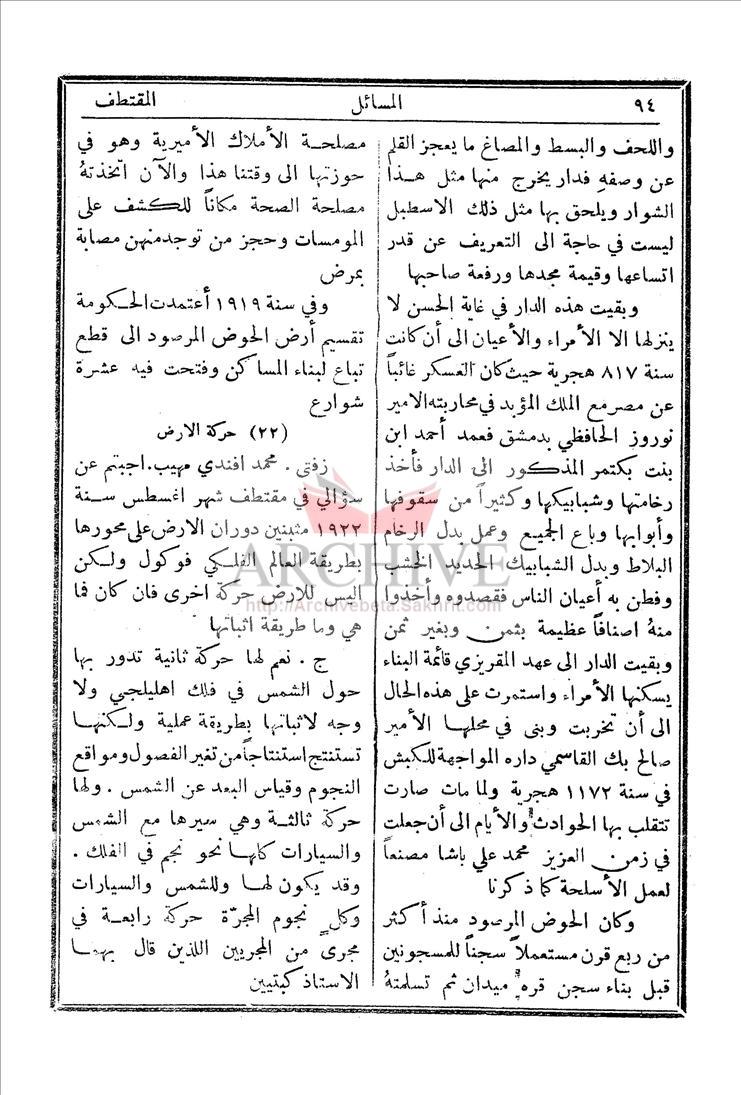 ٩٤ المسائل المقتطف
واللحف والبسط والمصاغ ما يعجز القلم
عن وصفهِ فدار يخرج منها مثل هذا
الشوار ويلحق بها مثل ذلك الاسطبل
ليست في حاجة الى التعريف عن قدر
اتساعها وقيمة مجدها ورفعة صاحبها
وبقيت هذه الدار في غاية الحسن لا
ينزلها الا الأمراء والأعيان الى أن كانت
سنة ٨١٧ هجرية حيث كان العسكر غائباً
عن مصر مع الملك المؤيد في محاربته الامير
نوروز الحافظي بدمشق فعمد أحمد ابن
بنت بكتمر المذكور الى الدار فأخذ
رخامتها وشبابيكها وكثيراً من سقوفها
وأبوابها وباع الجميع وعمل بدل الرخام
البلاط وبدل الشبابيك الحديد الخشب
وفطن به أعيان الناس فقصدوه وأخذوا
منهُ اصنافاً عظيمة بثمن وبغير ثمن
وبقيت الدار الى عهد المقريزي قائمة البناء
يسكنها الأمراء واستمرت على هذه الحال
الى أن تخربت وبنى في محلها الأمير
صالح بك القاسمي داره المواجهة للكبش
في سنة ١١٧٢ هجرية ولما مات صارت
تتقلب بها الحوادث والأيام الى أن جعلت
في زمن العزيز محمد علي باشا مصنعاً
لعمل الأسلحة كما ذكرنا
وكان الحوض المرصود منذ أكثر
من ربع قرن مستعملاً سجناً للمسجونين
قبل بناء سجن قره ميدان ثم تسلمتهُ
مصلحة الأملاك الأميرية وهو في
حوزتها الى وقتنا هذا والآن اتخذتهُ
مصلحة الصحة مكاناً للكشف على
المومسات وحجز من توجد منهن مصابة
بمرض
وفي سنة ١٩١٩ أعتمدت الحكومة
تقسيم أرض الحوض المرصود الى قطع
تباع لبناء المساكن وفتحت فيه عشرة
شوارع
(٢٢) حركة الارض
زفتى . محمد افندي مهيب . اجبتم عن
سؤالي في مقتطف شهر اغسطس سنة
١٩٢٢ مثبتين دوران الارض على محورها
بطريقة العالم الفلكي فوكول ولكن
اليس للارض حركة اخرى فان كان فما
هي وما طريقة اثباتها
ج . نعم لها حركة ثانية تدور بها
حول الشمس في فلك اهليلجي ولا
وجه لاثباتها بطريقة عملية ولكنها
تستنتج استنتاجاً من تغير الفصول ومواقع
النجوم وقياس البعد عن الشمس . ولها
حركة ثالثة وهي سيرها مع الشمس
والسيارات كلها نحو نجم في الفلك .
وقد يكون لها وللشمس والسيارات
وكل نجوم المجرّة حركة رابعة في
مجرى من المجريين اللذين قال بهما
الاستاذ كبتيين
ARCHIVE
http://Archivebeta.Sakhrit.com